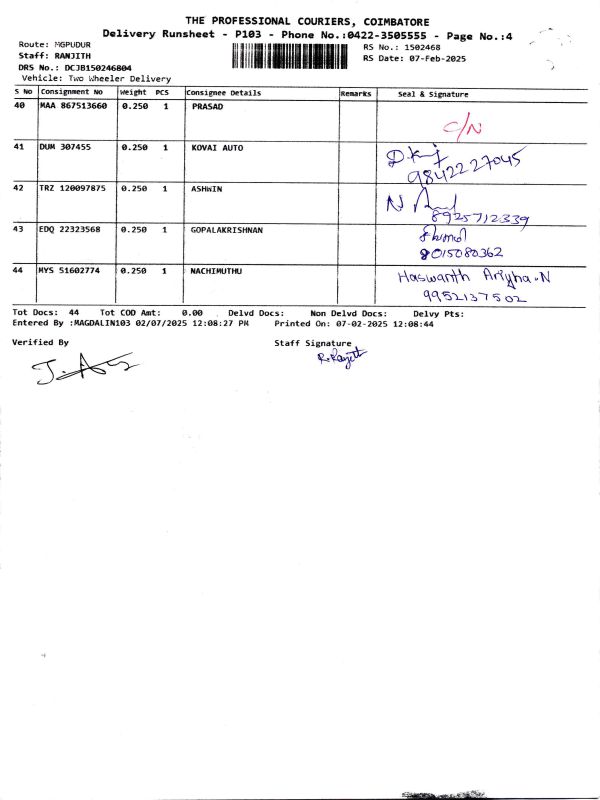 THE PROFESSIONAL COURIERS, COIMBATORE
Delivery Runsheet - P103 - Phone No.:0422-3505555 - Page No.:4
Route: MGPUDUR
RS No.: 1502468
Staff: RANJITH
RS Date: 07-Feb-2025
DRS No.: DCJB150246804
Vehicle: Two Wheeler Delivery
S No Consignment No Weight PCS Consignee Details Remarks Seal & Signature
40 MAA 867513660 0.250 1 PRASAD
C/N
41 DUM 307455 0.250 1 KOVAI AUTO
9842227045
42 TRZ 120097875 0.250 1 ASHWIN
8925712339
43 EDQ 22323568 0.250 1 GOPALAKRISHNAN
8015080362
44 MYS 51602774 0.250 1 NACHIMUTHU
Haswanth Ariyha.N
9952137502
Tot Docs: 44 Tot COD Amt: 0.00 Delvd Docs: Non Delvd Docs: Delvy Pts:
Entered By :MAGDALIN103 02/07/2025 12:08:27 PM Printed On: 07-02-2025 12:08:44
Verified By Staff Signature